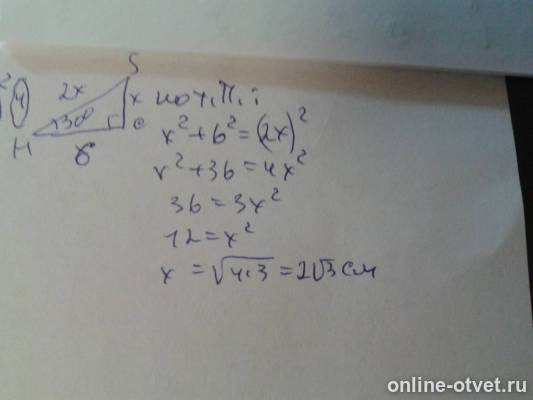 2 4
S
2x
x
30°
H
6
по т.П.:
x²+6²=(2x)²
x²+36=4x²
36=3x²
12=x²
x=√4·3=2√3см
online-otvet.ru